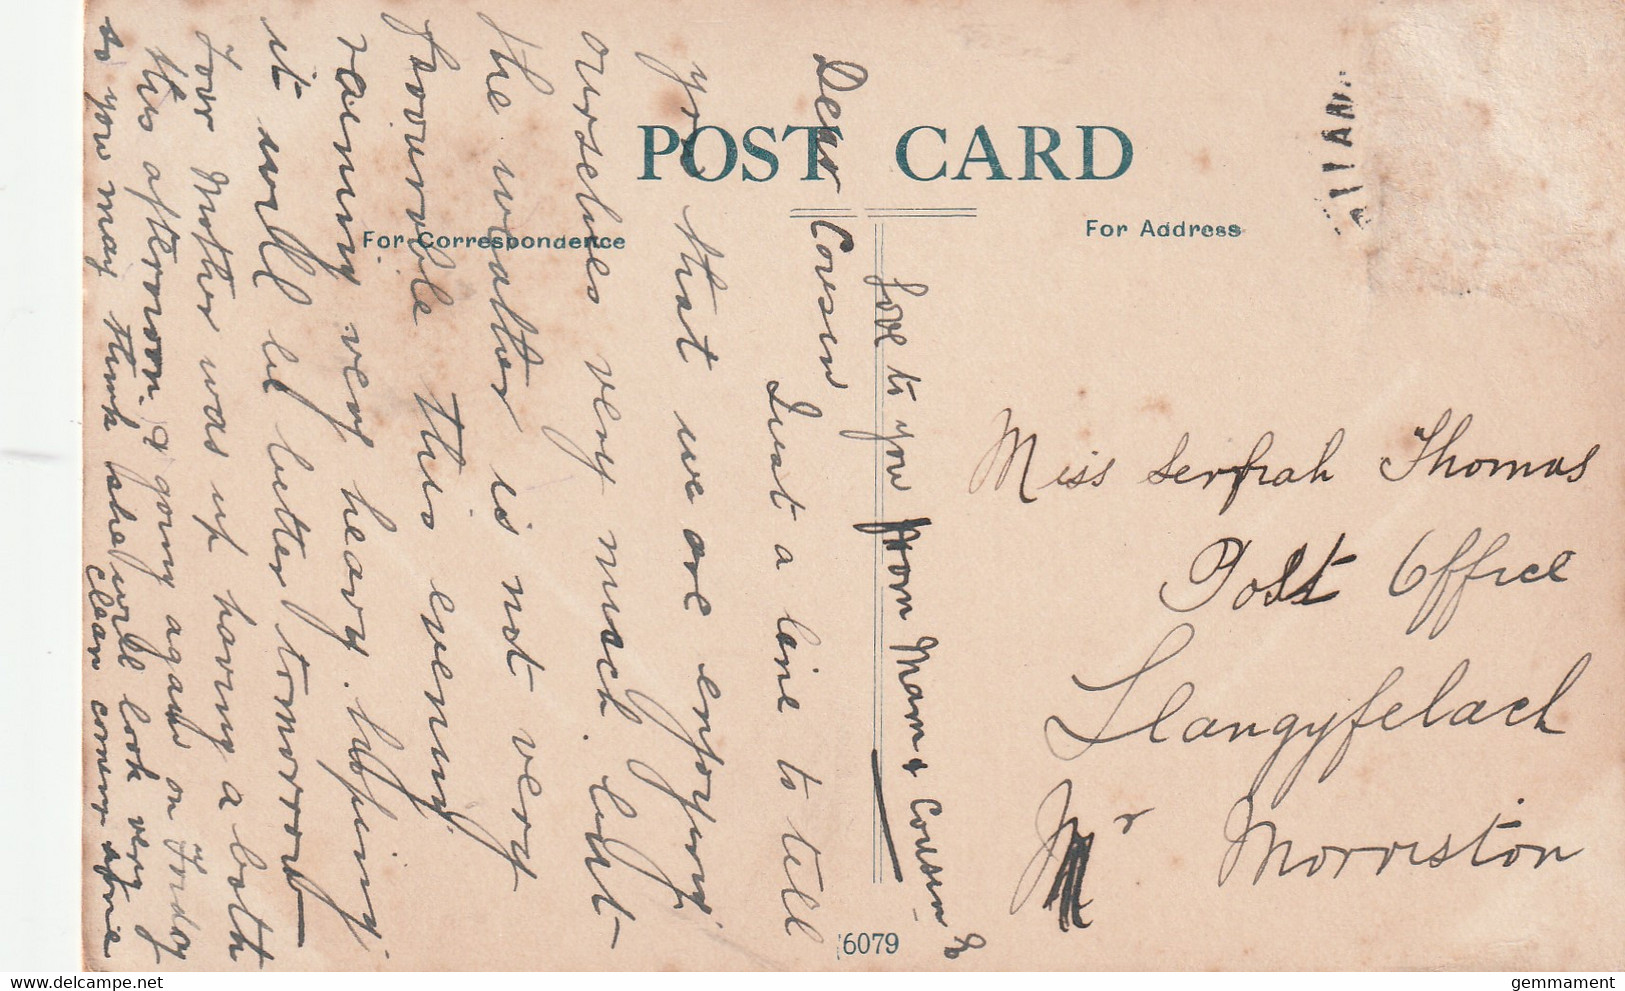 POST CARD
For Correspondence
For Address
Dear Cousin
Just a line to till
you that we are enjoying
ourselves very much but
the weather is not very
favourable this evening
raining very heavy. hopping
it will be better tomorrow
your Mother was up having a bath
this afternoon. & going again on Friday
so you may think she will look very
clean comeing
Love to you from Mam & Cousin
Miss Serfiah Thomas
Post Office
Llangyfelach
Nr Morriston
6079
gemmament